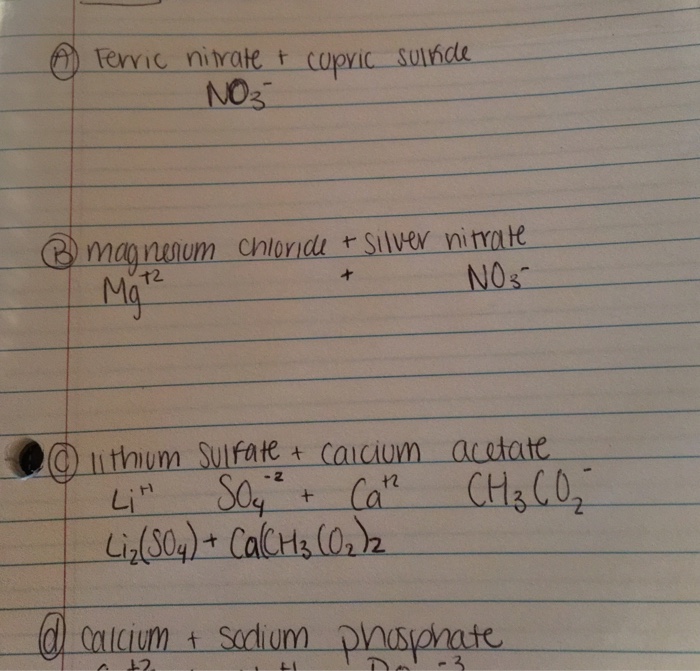 Ⓐ Ferric nitrate + cupric sulfide
NO₃⁻
Ⓑ magnesium chloride + silver nitrate
Mg⁺² + NO₃⁻
Ⓒ lithium sulfate + calcium acetate
Li⁺¹ SO₄⁻² + Ca⁺² CH₃CO₂⁻
Li₂(SO₄) + Ca(CH₃CO₂)₂
ⓓ calcium + sodium phosphate
+2 +1 -3